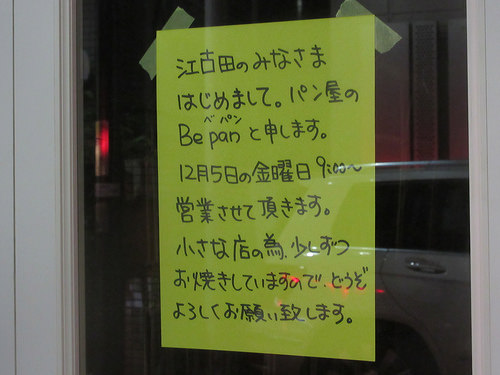 江古田のみなさま
はじめまして。パン屋の
ベパン
Be panと申します。
12月5日の金曜日 9:00〜
営業させて頂きます。
小さな店の為、少しずつ
お焼きしていますので、どうぞ
よろしくお願い致します。